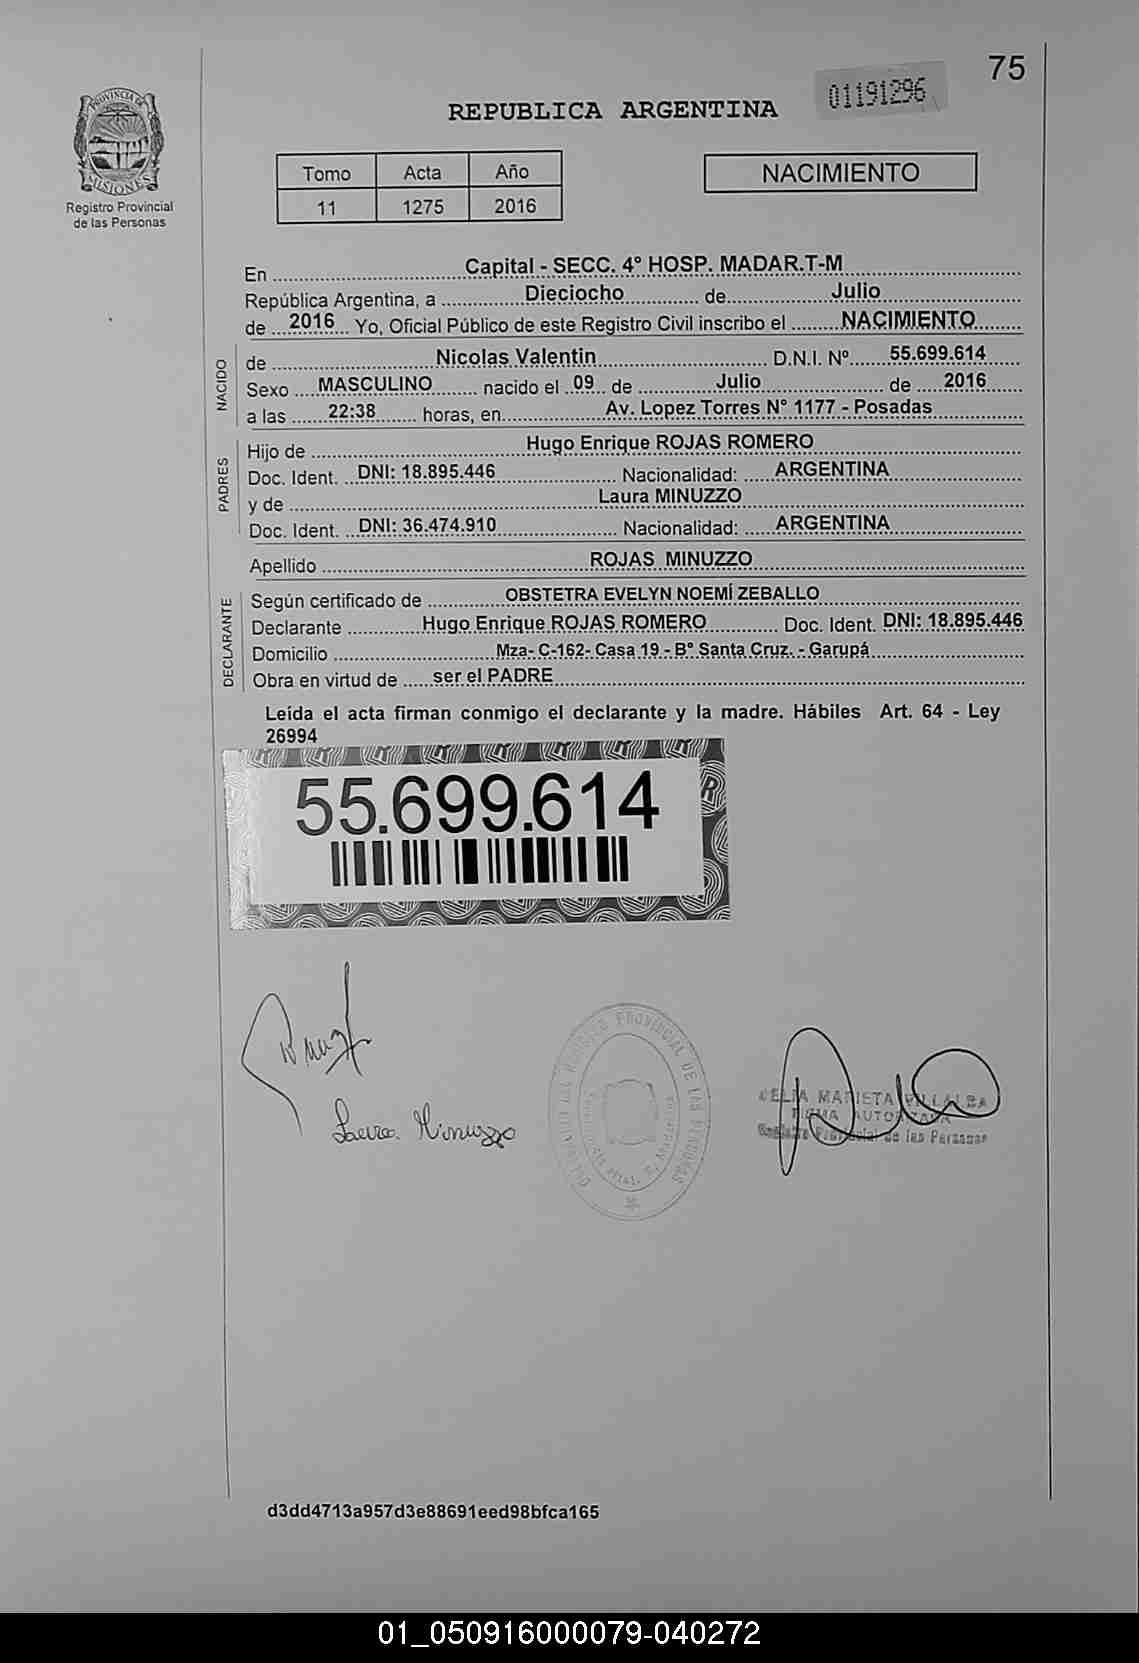 75
01191296
REPUBLICA ARGENTINA
PROVINCIA DE
MISIONES
Registro Provincial
de las Personas
Tomo Acta Año
11 1275 2016
NACIMIENTO
En Capital - SECC. 4° HOSP. MADAR.T-M
República Argentina, a Dieciocho de Julio
de 2016 Yo, Oficial Público de este Registro Civil inscribo el NACIMIENTO
NACIDO
de Nicolas Valentin D.N.I. Nº 55.699.614
Sexo MASCULINO nacido el 09 de Julio de 2016
a las 22:38 horas, en Av. Lopez Torres N° 1177 - Posadas
PADRES
Hijo de Hugo Enrique ROJAS ROMERO
Doc. Ident. DNI: 18.895.446 Nacionalidad: ARGENTINA
y de Laura MINUZZO
Doc. Ident. DNI: 36.474.910 Nacionalidad: ARGENTINA
Apellido ROJAS MINUZZO
DECLARANTE
Según certificado de OBSTETRA EVELYN NOEMÍ ZEBALLO
Declarante Hugo Enrique ROJAS ROMERO Doc. Ident. DNI: 18.895.446
Domicilio Mza- C-162- Casa 19 - B° Santa Cruz. - Garupá
Obra en virtud de ser el PADRE
Leída el acta firman conmigo el declarante y la madre. Hábiles Art. 64 - Ley
26994
55.699.614
Laura Minuzzo
PROVINCIAL DE LAS PERSONAS
CELIA MARIETA VILLALBA
FIRMA AUTORIZADA
Registro Provincial de las Personas
d3dd4713a957d3e88691eed98bfca165
01_050916000079-040272